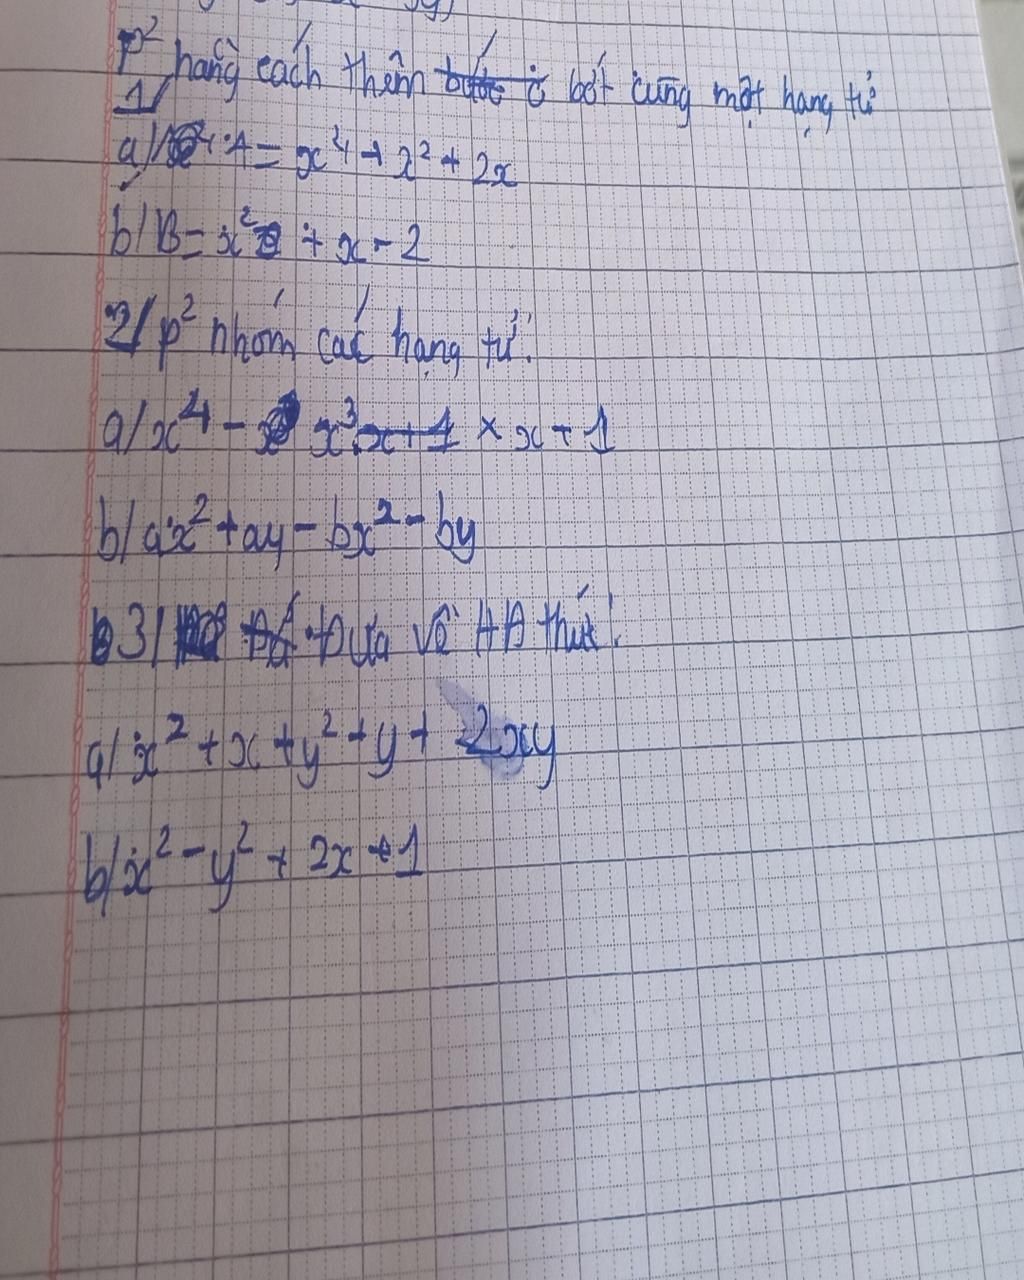 p² hằng cách thêm bớt cùng một hạng tử
1/
a/ A = x⁴ + x² + 2x
b/ B = x² + x - 2
2/ p² nhóm các hạng tử.
a/ x⁴ - x³ x + 1 × x + 1
b/ ax² + ay - bx² - by
3/ Đưa về HĐ thức.
a/ x² + x + y² + y + 2xy
b/ x² - y² + 2x + 1